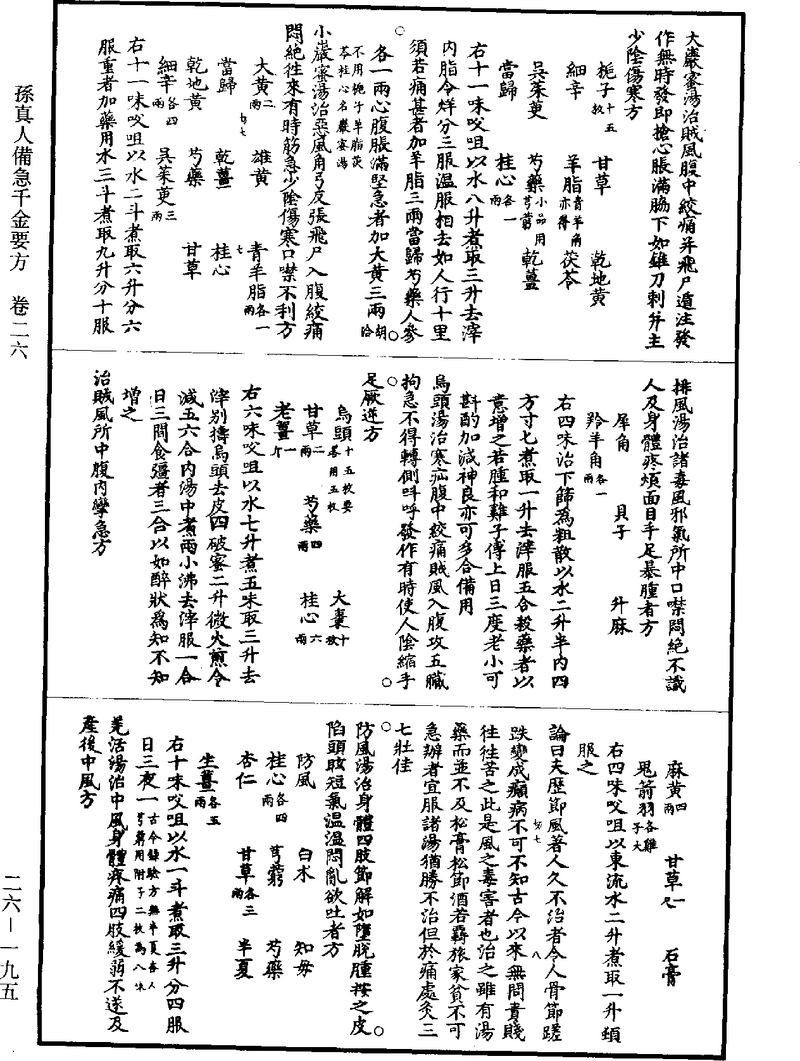 大巖蜜湯治賊風腹中絞痛并飛尸遁注發
作無時發即搶心脹滿脇下如錐刀刺并主
少陰傷寒方
梔子十五枚 甘草 乾地黄
細辛 羊脂青羊角亦得 茯苓
吳茱萸 芍藥小品用芎藭 乾薑
當歸 桂心各一兩
右十一味㕮咀以水八升煮取三升去滓
内脂令烊分三服温服相去如人行十里
須若痛甚者加羊脂三兩當歸芍藥人參
各一兩心腹脹滿堅急者加大黄三兩胡洽
不用梔子羊脂茯
苓桂心名巖蜜湯
小巖蜜湯治惡風角弓反張飛尸入腹絞痛
悶絶往來有時筋急少陰傷寒口噤不利方
大黄二兩 雄黄 青羊脂各一兩
當歸 乾薑 桂心
乾地黄 芍藥 甘草
細辛各四兩 吳茱萸三兩
右十一味㕮咀以水二斗煮取六升分六
服重者加藥用水三斗煮取九升分十服
排風湯治諸毒風邪氣所中口噤悶絶不識
人及身體疼煩面目手足暴腫者方
犀角 貝子 升麻
羚羊角各一兩
右四味治下篩爲粗散以水二升半内四
方寸匕煮取一升去滓服五合殺藥者以
意增之若腫和雞子傅上日三度老小可
斟酌加減神良亦可多合備用
烏頭湯治寒疝腹中絞痛賊風入腹攻五臟
拘急不得轉側叫呼發作有時使人陰縮手
足厥逆方
烏頭十五枚要畧用五枚 大棗十枚
甘草二兩 芍藥四兩 桂心六兩
老薑一斤
右六味㕮咀以水七升煮五味取三升去
滓別擣烏頭去皮四破蜜二升微火煎令
減五六合内湯中煮兩小沸去滓服一合
日三間食彊者三合以如醉狀爲知不知
增之
治賊風所中腹内攣急方
麻黄四兩 甘草一尺 石膏
鬼箭羽各雞子大
右四味㕮咀以東流水二升煮取一升頓
服之
論曰夫歷節風著人久不治者令人骨節蹉
跌變成癲病不可不知古今以來無問貴賤
往往苦之此是風之毒害者也治之雖有湯
藥而並不及松膏松節酒若羇旅家貧不可
急辦者宜服諸湯猶勝不治但於痛處灸三
七壯佳
防風湯治身體四肢節解如墮脱腫按之皮
陷頭眩短氣温温悶亂欲吐者方
防風 白术 知母
桂心各四兩 芎藭 芍藥
杏仁 甘草各三兩 半夏
生薑各五兩
右十味㕮咀以水一斗煮取三升分四服
日三夜一古今録驗方無半夏杏人
芎藭用附子二枚爲八味
羌活湯治中風身體疼痛四肢緩弱不遂及
產後中風方
孫真人備急千金要方 卷二六
二六—一九五